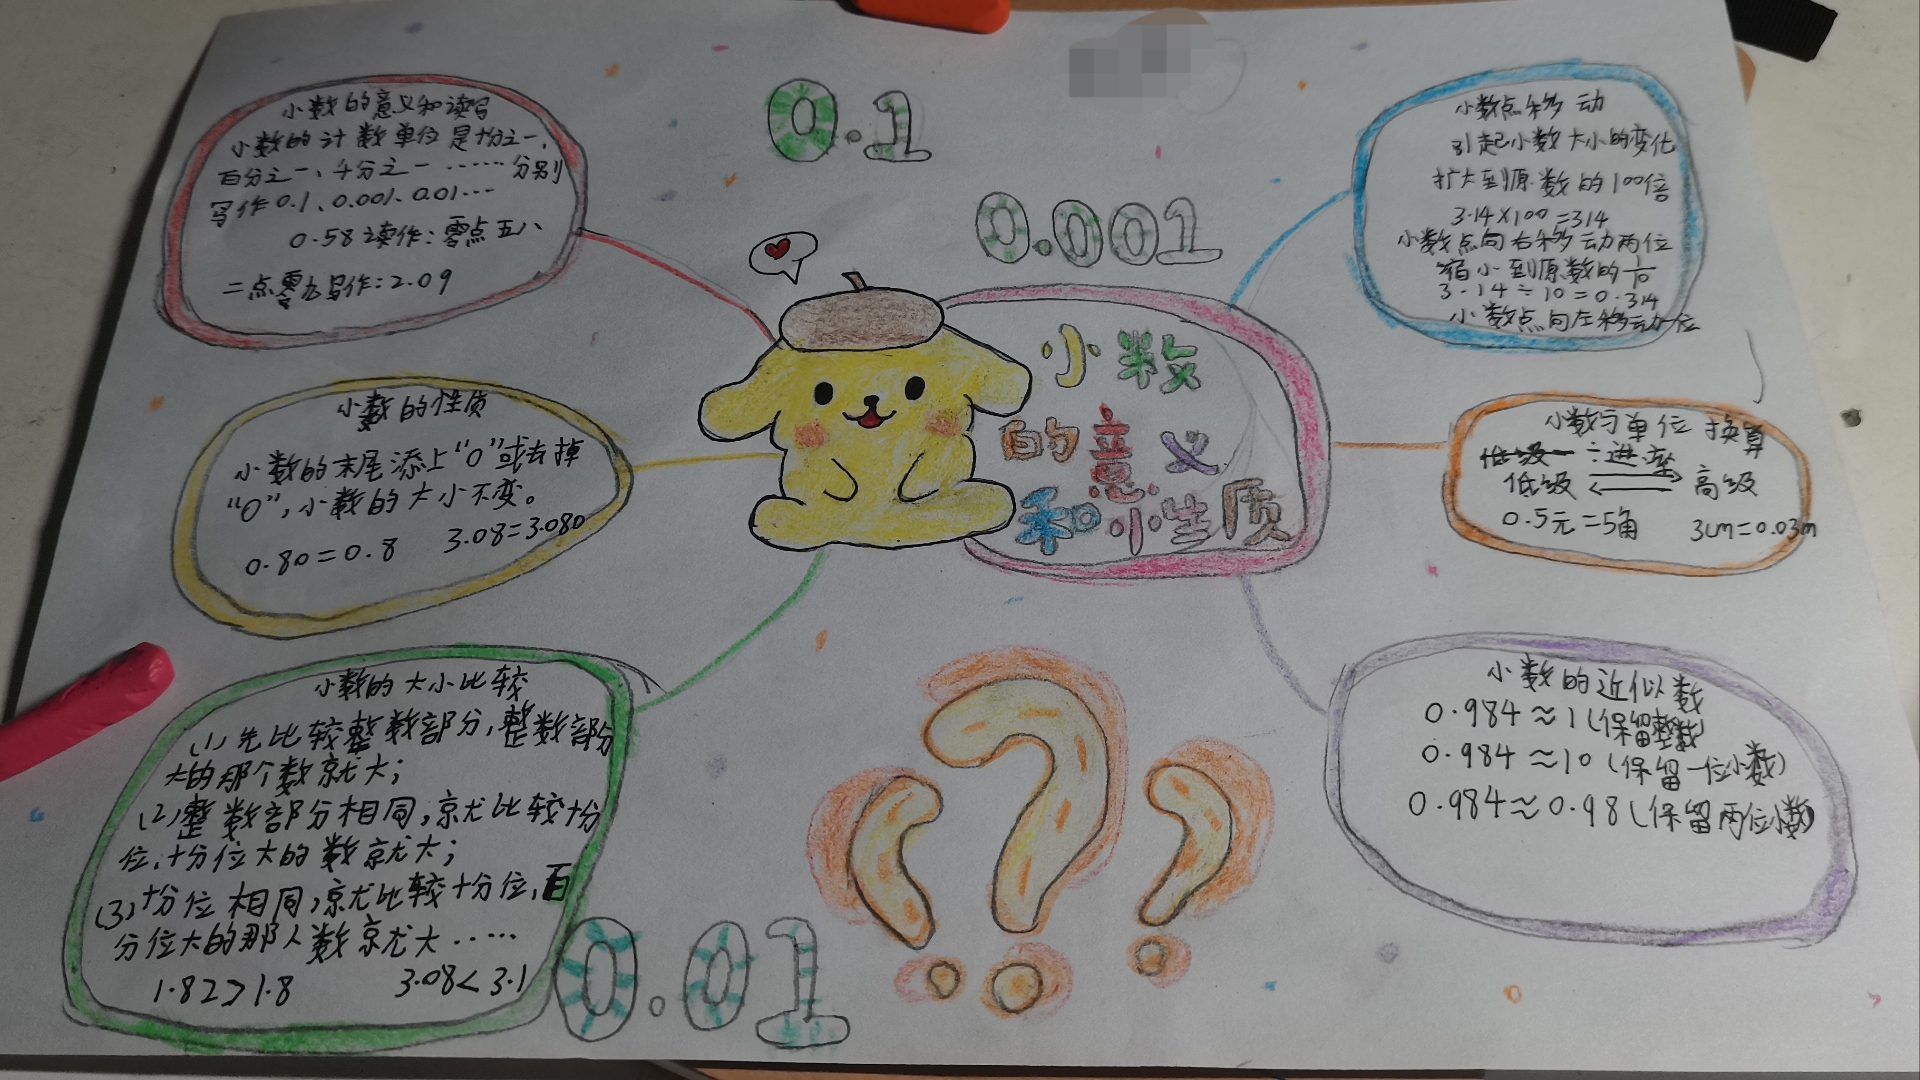 小数的意义和读写
小数的计数单位是十分之一、
百分之一、千分之一……分别
写作0.1、0.001、0.01…
0.58读作：零点五八
二点零九写作：2.09
小数的性质
小数的末尾添上“0”或去掉
“0”，小数的大小不变。
0.80=0.8 3.08=3.080
小数的大小比较
(1)先比较整数部分，整数部分
大的那个数就大；
(2)整数部分相同，就比较十分
位，十分位大的数就大；
(3)十分位相同，就比较十分位，百
分位大的那人数就大……
1.82>1.8 3.08<3.1
0.1
0.001
小数
的意义
和小性质
0.01
小数点移动
引起小数大小的变化
扩大到原数的100倍
3.14×100=314
小数点向右移动两位
缩小到原数的1/10
3.14÷10=0.314
小数点向左移动一位
小数与单位换算
低级 ÷进率
低级 高级
0.5元=5角 3cm=0.03m
小数的近似数
0.984≈1(保留整数)
0.984≈10(保留一位小数)
0.984≈0.98(保留两位小数)